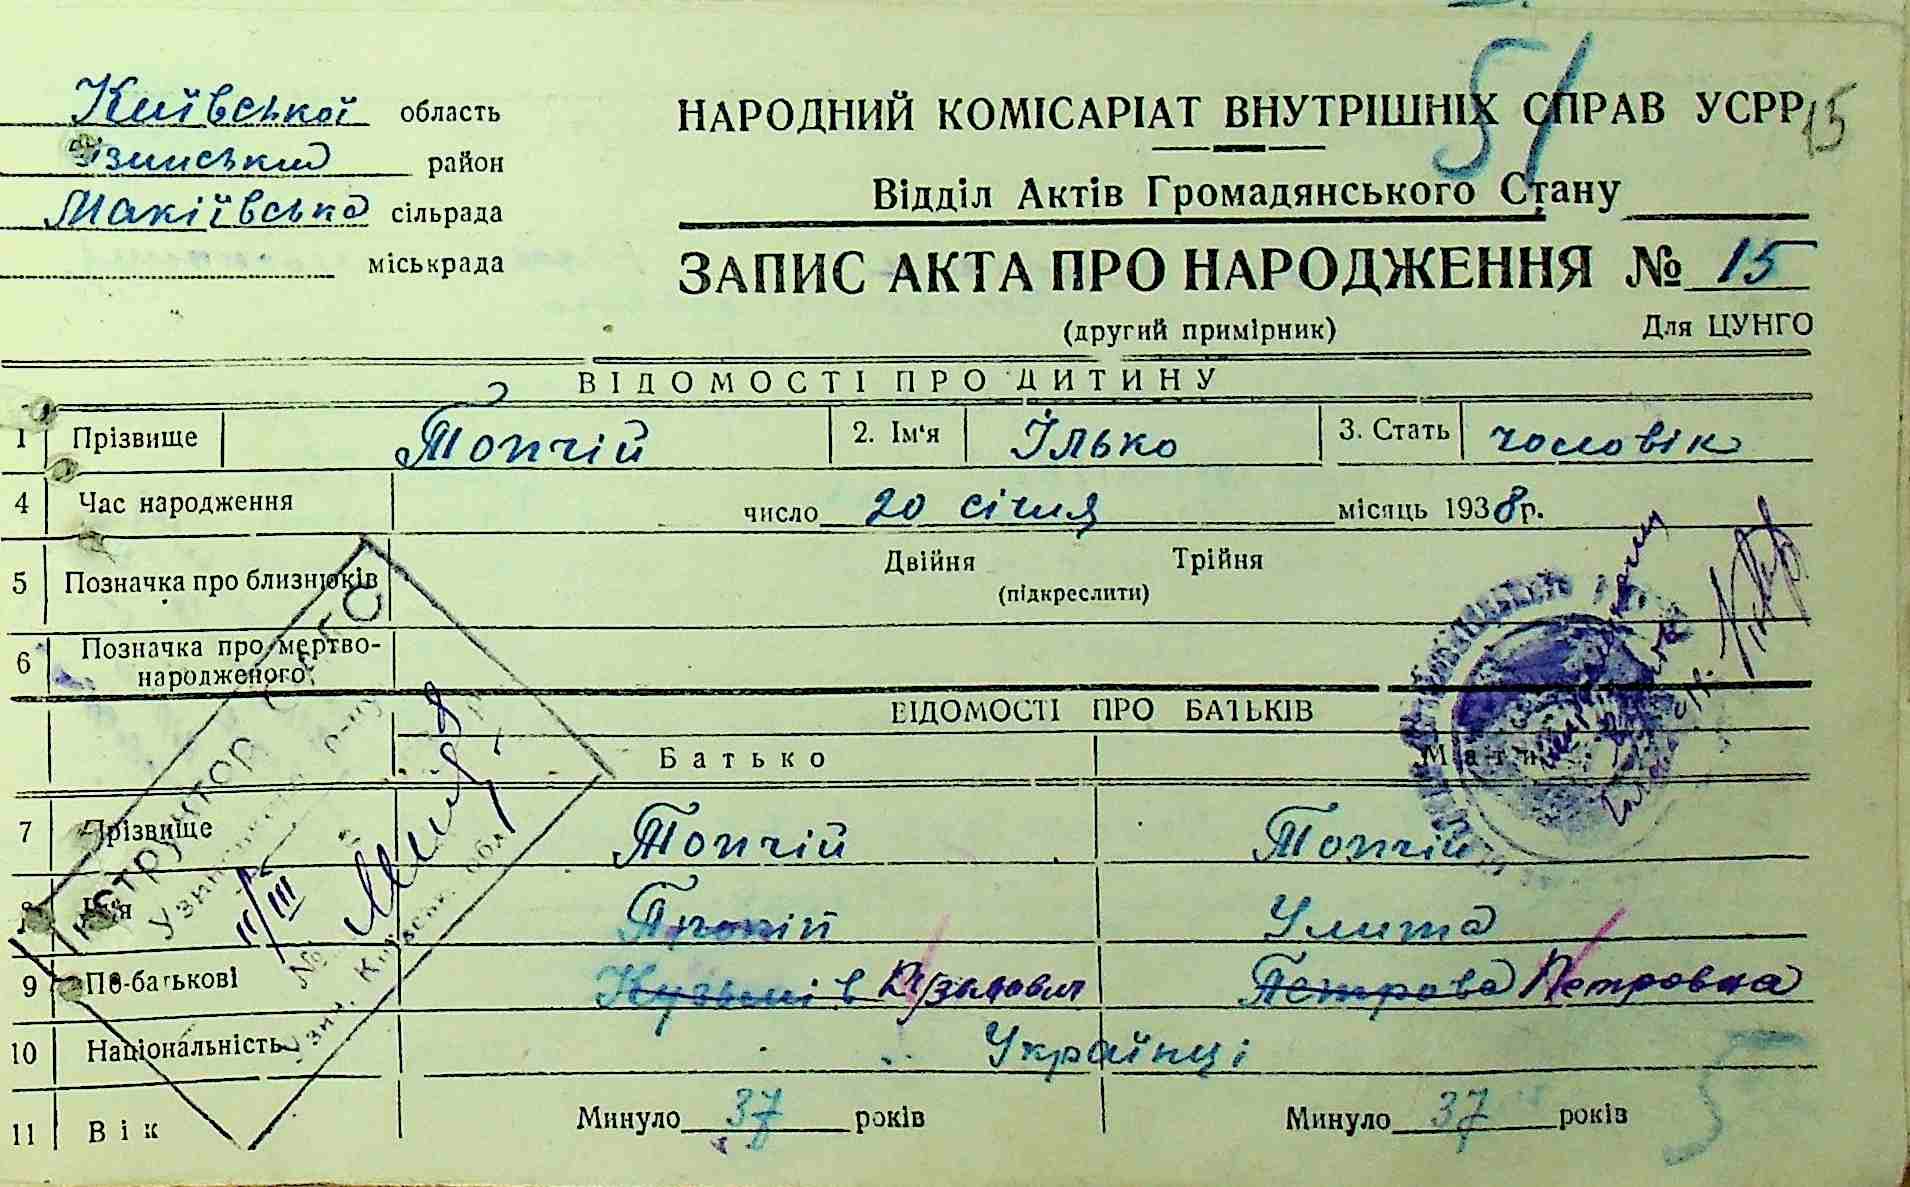 51
Київської область
НАРОДНИЙ КОМІСАРІАТ ВНУТРІШНІХ СПРАВ УСРР
15
район
Відділ Актів Громадянського Стану
Макіївська сільрада
міськрада
ЗАПИС АКТА ПРО НАРОДЖЕННЯ № 15
(другий примірник) Для ЦУНГО
ВІДОМОСТІ ПРО ДИТИНУ
1 Прізвище Топчій 2. Ім‘я Ілько 3. Стать чоловік
4 Час народження число 20 січня місяць 1938 р.
5 Позначка про близнюків Двійня Трійня
(підкреслити)
6 Позначка про мертво-
народженого
ВІДОМОСТІ ПРО БАТЬКІВ
Батько Мати
7 Прізвище Топчій Топчій
8 Ім'я Улита
9 По-батькові Кузьмів Кузьмович Петрова Петровна
10 Національність Українці
11 Вік Минуло 37 років Минуло 37 років
5
Інструктор
11/III